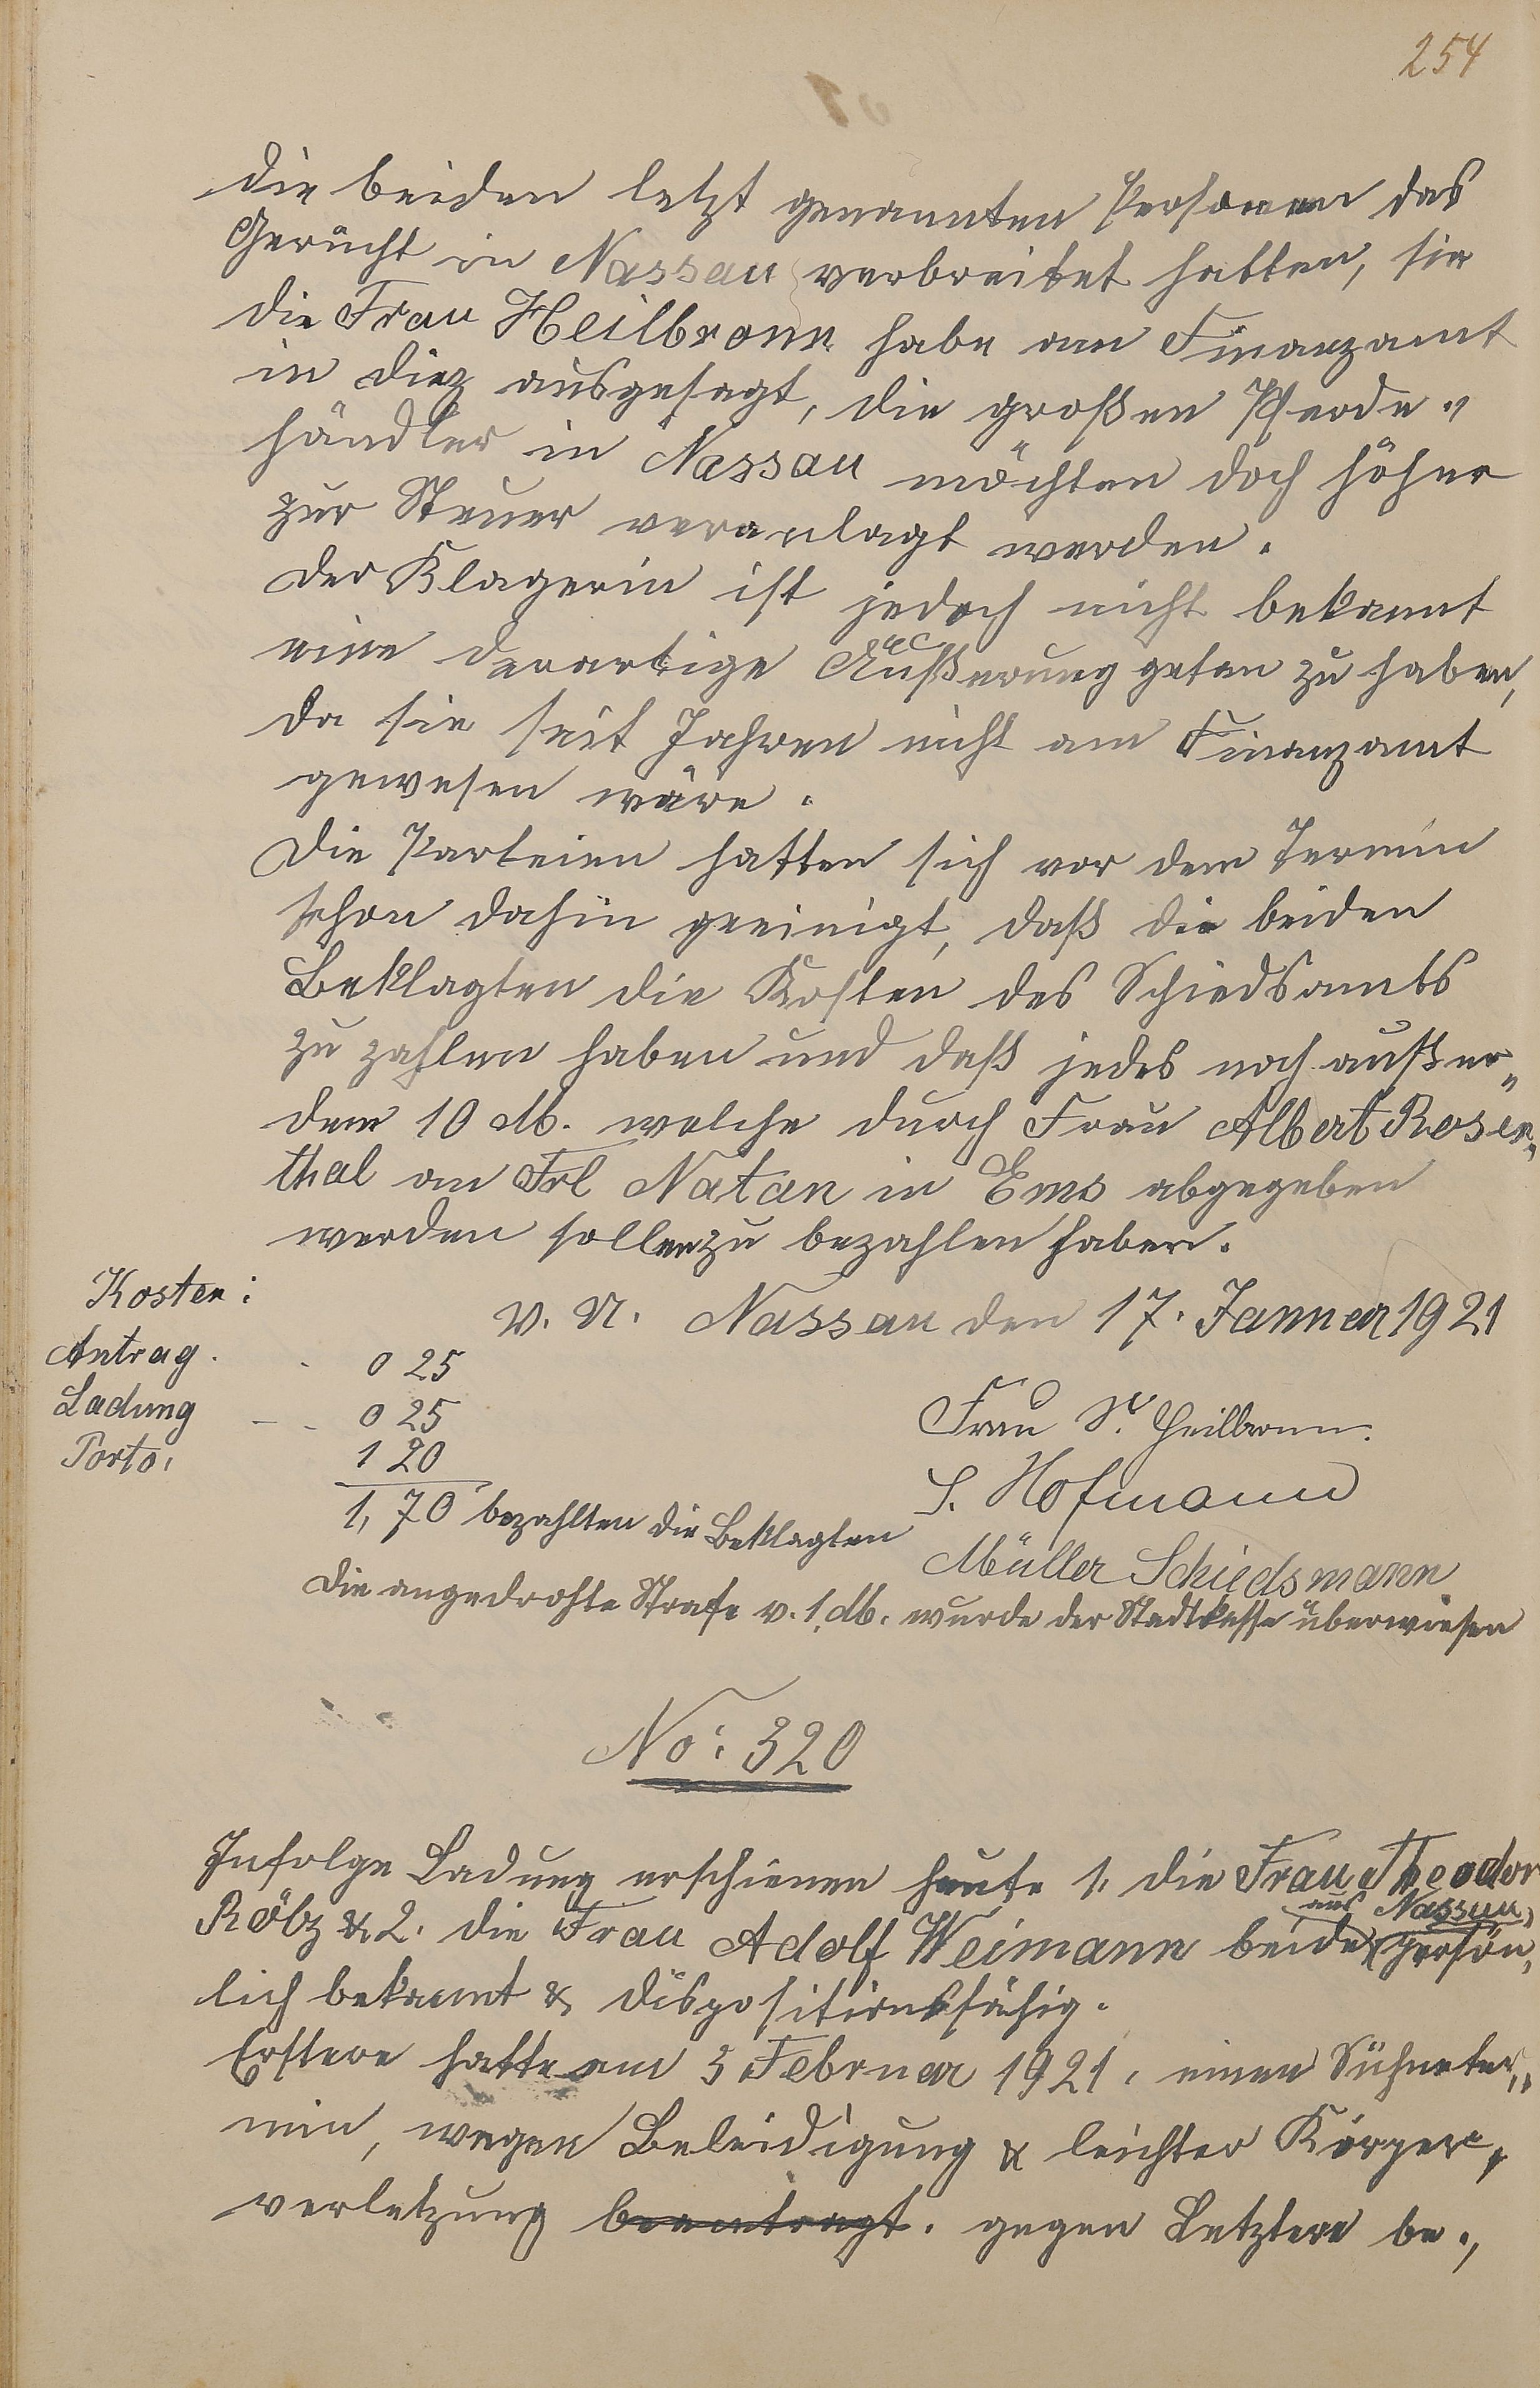 254
die beiden letzt genannten Personen das
Gerücht in Nassau verbreitet hatten, sie
die Frau Heilbronn habe am Finanzamt
in Diez ausgesagt, die großen Pferde„
händler in Nassau möchten doch höher
zur Steuer veranlagt werden.
Der Klagerin ist jedoch nicht bekannt
eine derartige Äußerung getan zu haben,
da sie seit Jahren nicht am Finanzamt
gewesen wäre.
Die Parteien hatten sich vor dem Termin
schon dahin geeinigt, daß die beiden
Beklagten die Kosten des Schiedsamts
zu zahlen haben und daß jedes noch außer„
dem 10 M. welche durch Frau Albert Rosen„
thal an Frl Natan in Ems abgegeben
werden sollen zu bezahlen haben.
Kosten:
v. u. Nassau den 17. Januar 1921
Antrag. - 0 25
Ladung - - 0 25
Frau S. Heilbronn.
Porto. 1 20
S. Hofmann
1,70 bezahlten die Beklagten
Müller Schiedsmann
Die angedrohte Strafe v. 1. M. wurde der Stadtkasse überwiesen
No: 320
Infolge Ladung erschienen heute 1. die Frau Theodor
aus Nassau„
Rölz & 2. die Frau Adolf Weimann beide persön„
lich bekannt & dispositionsfähig.
Erstere hatte am 3 Februar 1921. einen Sühneter„
min, wegen Beleidigung & leichter Körper„
verletzung beantragt. gegen Letztere be„